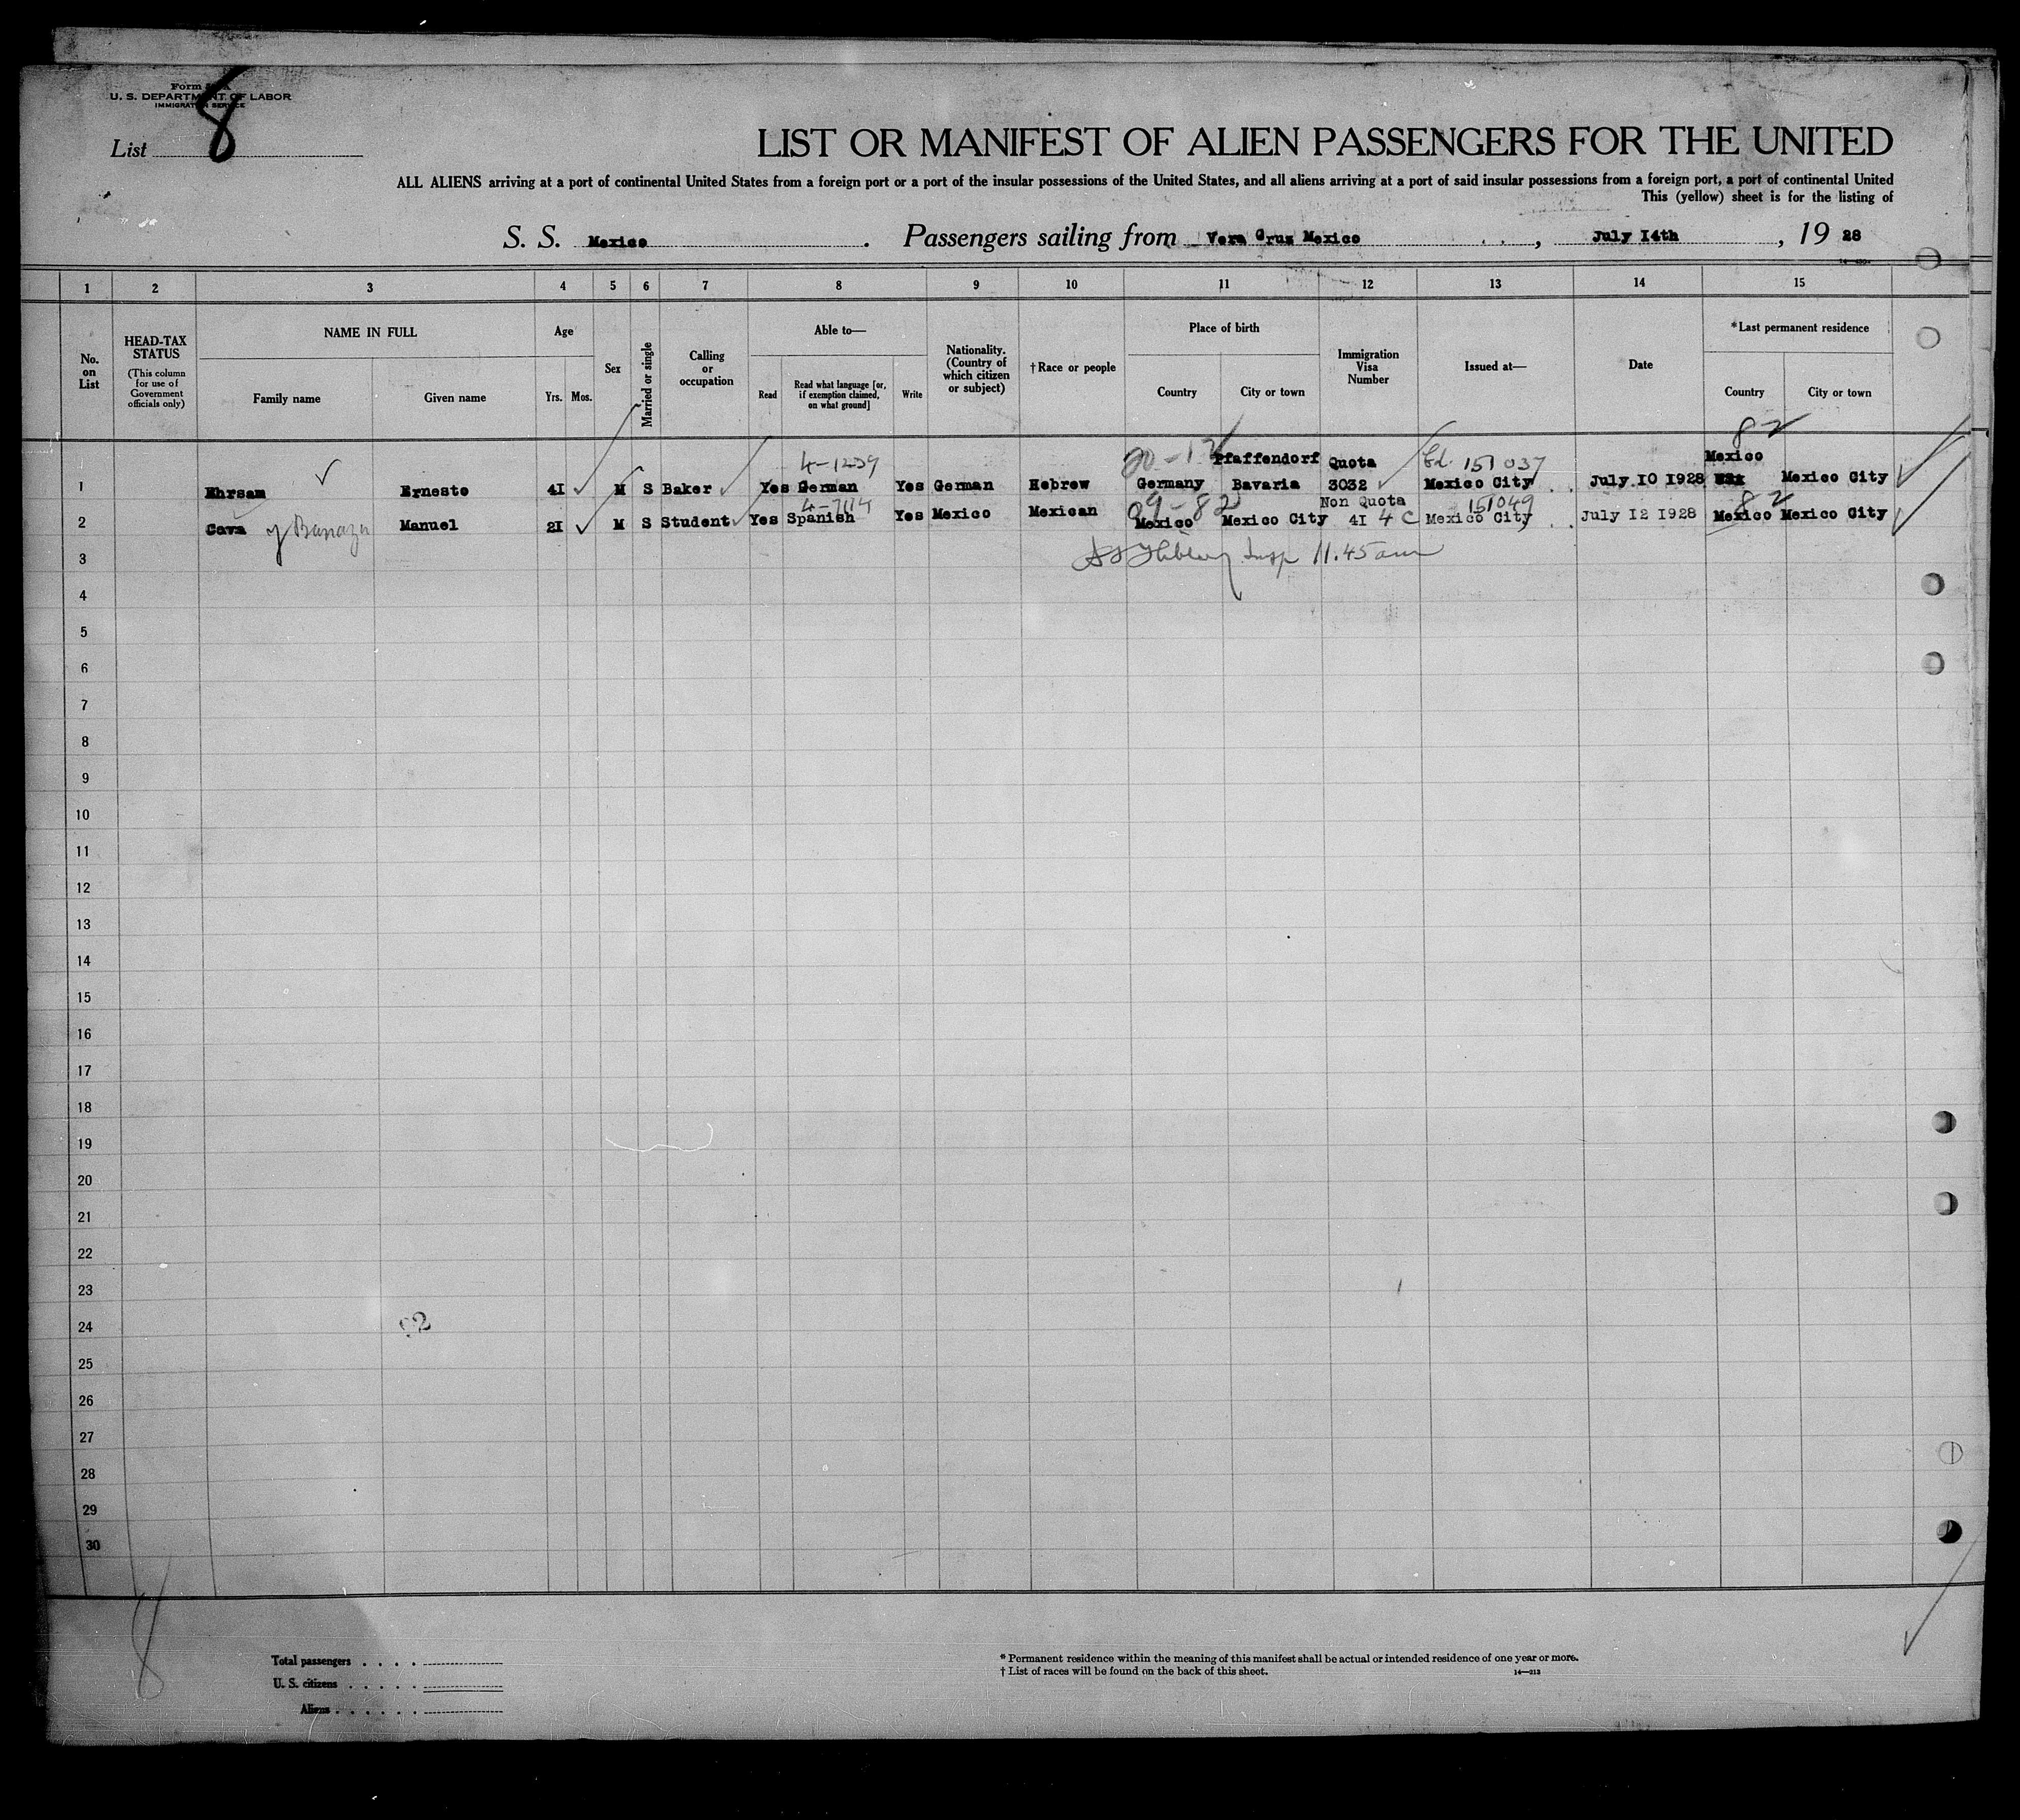 Form
U. S. DEPARTMENT OF LABOR
IMMIGRATION SERVICE
List 8
LIST OR MANIFEST OF ALIEN PASSENGERS FOR THE UNITED
ALL ALIENS arriving at a port of continental United States from a foreign port or a port of the insular possessions of the United States, and all aliens arriving at a port of said insular possessions from a foreign port, a port of continental United
This (yellow) sheet is for the listing of
S. S. Mexico. Passengers sailing from Vera Cruz Mexico, July 14th, 19 28
1 2 3 4 5 6 7 8 9 10 11 12 13 14 15
No. on List
HEAD-TAX STATUS
(This column for use of Government officials only)
NAME IN FULL
Family name
Given name
Age
Yrs.
Mos.
Sex
Married or single
Calling or occupation
Able to—
Read
Read what language [or, if exemption claimed, on what ground]
Write
Nationality. (Country of which citizen or subject)
†Race or people
Place of birth
Country
City or town
Immigration Visa Number
Issued at—
Date
*Last permanent residence
Country
City or town
8 2
4-1239 20-1 Pfaffendorf Quota 151037 Mexico
1 Ehrsam Ernesto 4I M S Baker Yes German Yes German Hebrew Germany Bavaria 3032 Mexico City July IO I928 Mexico City
4-7114 09-82 Non Quota 151049 8 2
2 Cava y Manuel 2I M S Student Yes Spanish Yes Mexico Mexican Mexico Mexico City 4I 4 C Mexico City July I2 I928 Mexico Mexico City
3 Insp 11.45 am
4
5
6
7
8
9
10
11
12
13
14
15
16
17
18
19
20
21
22
23
24
25
26
27
28
29
30
8
Total passengers
U. S. citizens
Aliens
* Permanent residence within the meaning of this manifest shall be actual or intended residence of one year or more.
† List of races will be found on the back of this sheet.
14—213